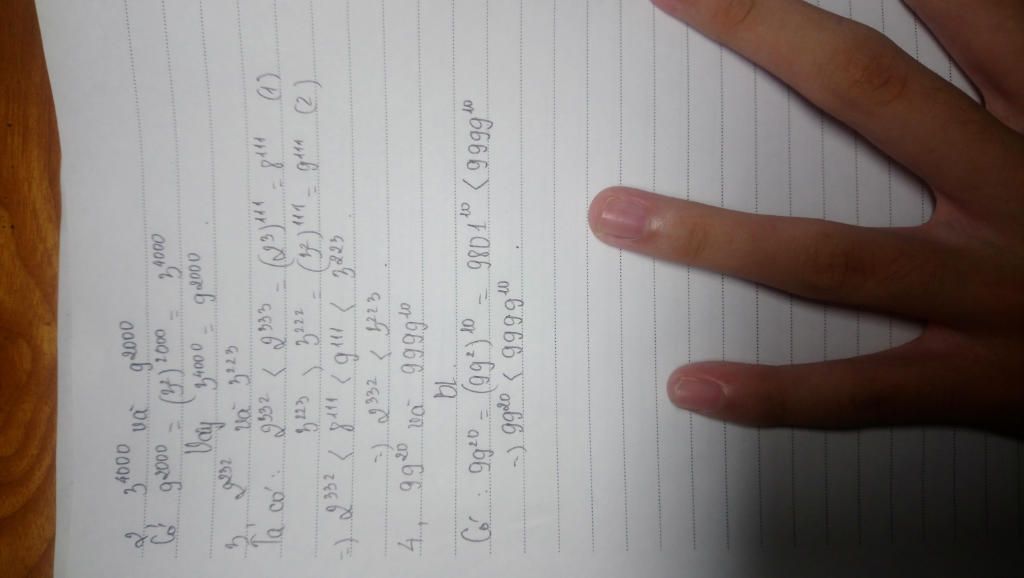 2, 3^4000 và 9^2000
Có 9^2000 = (3²)^2000 = 3^4000
Vậy 3^4000 = 9^2000.
3, 2^232 và 3^223
Ta có: 2^332 < 2^333 = (2^3)^111 = 8^111 (1)
3^223 > 3^222 = (3²)^111 = 9^111 (2)
=) 2^332 < 8^111 < 9^111 < 3^223
=) 2^332 < 3^223.
4., 99^20 và 9999^10
Có: 99^20 = (99²)^10 = 9801^10 < 9999^10
=) 99^20 < 9999^10.